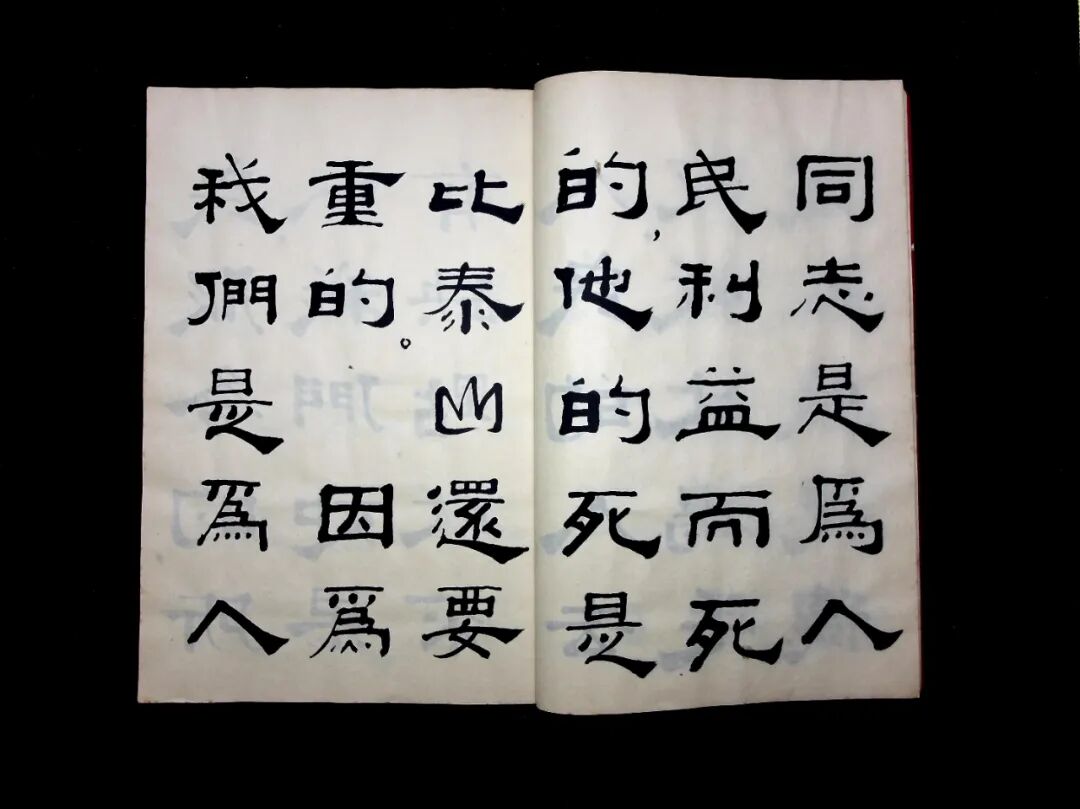 同志是爲人
民利益而死
的,他的死是
比泰山還要
重的。因爲
我們是爲人